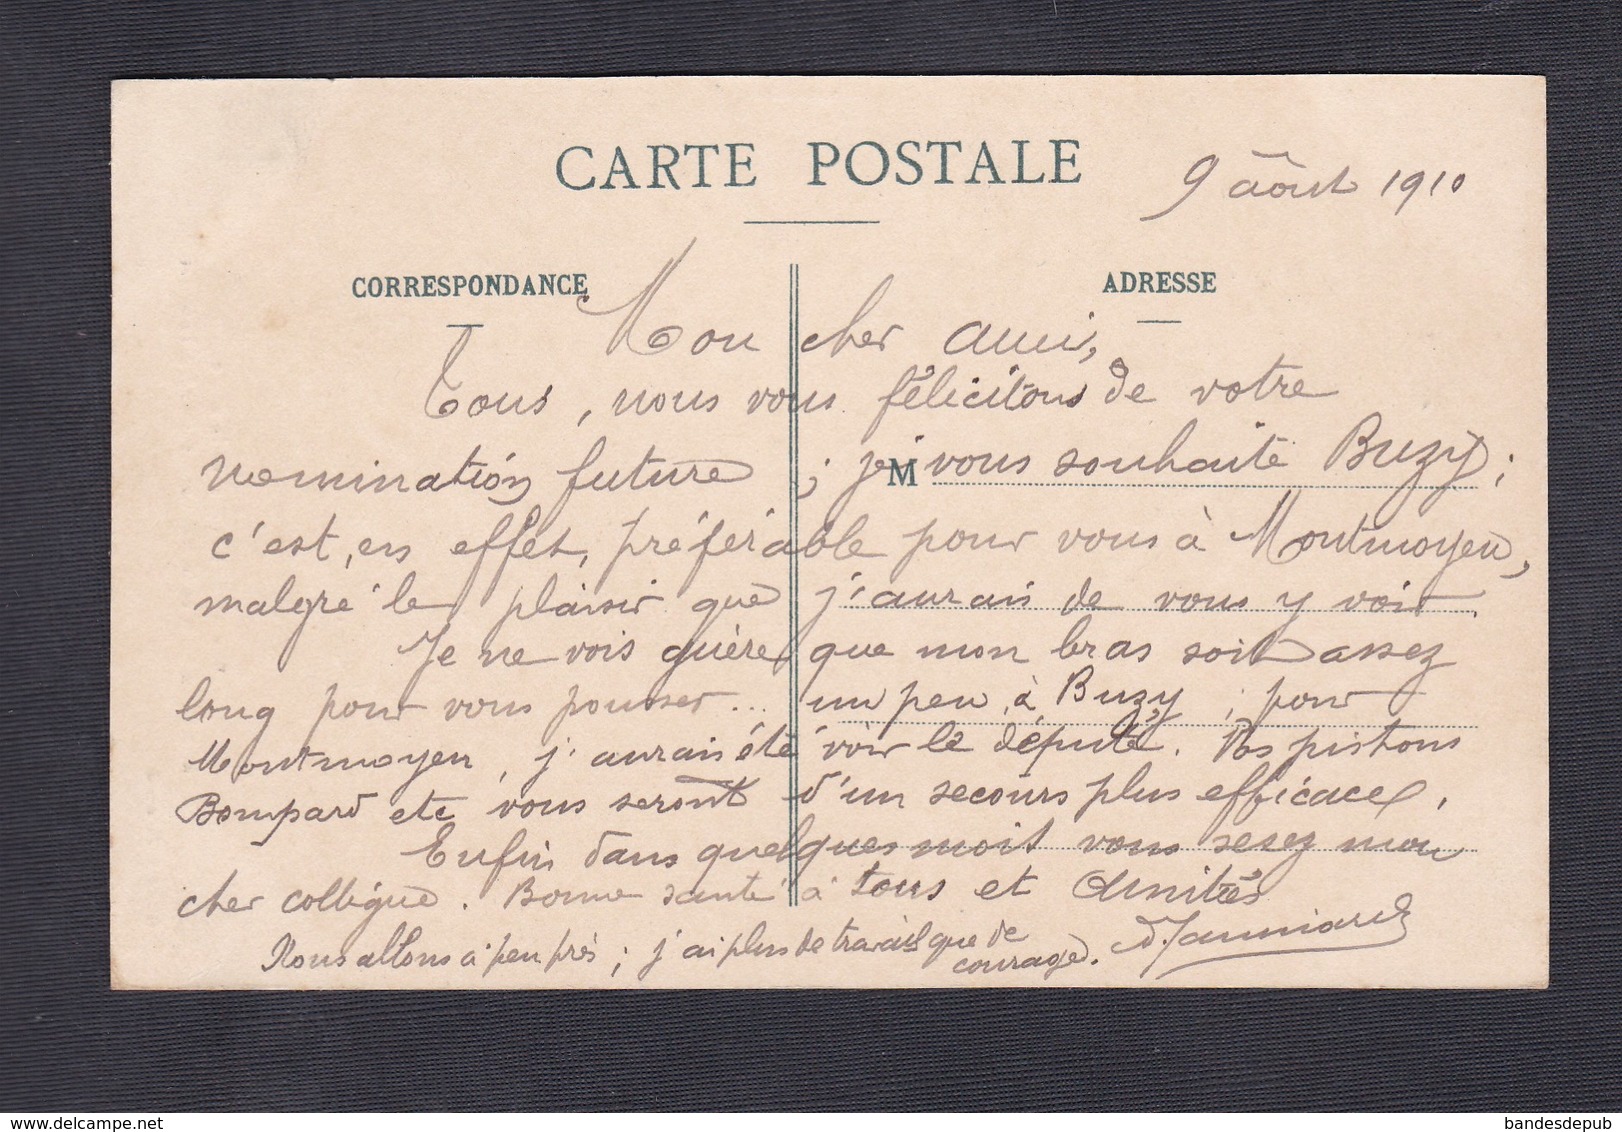 CARTE POSTALE
9 août 1910
CORRESPONDANCE
ADRESSE
Mon cher ami,
Tous, nous vous félicitons de votre
M
nomination future ; je vous souhaite Buzy ;
c'est, en effet, préférable pour vous à Montmoyen,
malgré le plaisir que j'aurais de vous y voir.
Je ne vois guère que mon bras soit assez
long pour vous pousser... un peu à Buzy ; pour
Montmoyen, j'aurais été voir le député. Vos pistons
Bompard etc vous seront d'un secours plus efficace.
Enfin dans quelques mois vous serez mon
cher collègue. Bonne santé à tous et Amitiés
Nous allons à peu près ; j'ai plus de travail que de
courage.
delcampe.net
bandesdepub